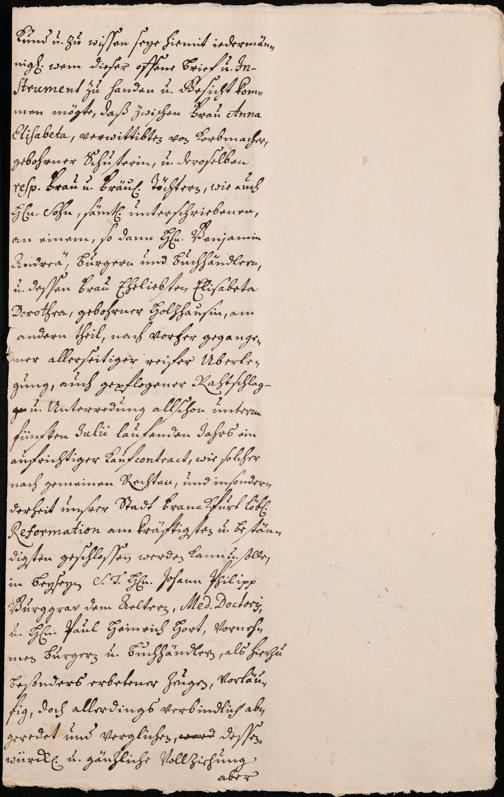 Kund u. zu wissen seye hiemit iedermän-
nigl. wem dieser offene Brief u. In-
strument zu handen u. Gesicht kom-
men mögte, daß zwischen Frau Anna
Elisabeta, verwittibten von Korbmacher,
gebohrner Schusterin, u. deroselben
resp. Frau u. Fräul. Töchtern, wie auch
Hln. Sohn, sämtl. unterschriebenen,
an einem, so dann Hln. Benjamin
Andreä, Burgern und Buchhändlern,
u. dessen Frau Eheliebsten Elisabeta
Dorothea, gebohrner Holzhausin, am
andern theil, nach vorher gegange-
ner allerseitiger reifer Uberle-
gung, auch gepflogener Rahtschlag-
u. Unterredung allschon unterm
fünften Julii laufenden Jahrs ein
aufrichtiger Kaufcontract, wie solcher
nach gemeinen Rechten, und insondern
derheit unsrer Stadt Franckfurt löbl.
Reformation am kräftigsten u. bestän-
digsten geschlossen werden kann u. solle,
in beyseyn S.T. Hln. Johann Philipp
Burggrav dem Aeltern, Med. Doctoris,
u. Hln. Paul Heinrich Hort, Vorneh-
men Burgern u. Buchhändlern, als hierzu
besonders erbetener Zeugen, vorläu-
fig, doch allerdings verbindlich ab-
geredet und verglichen, dessen
würckl. u. gäntzliche Vollziehung
aber